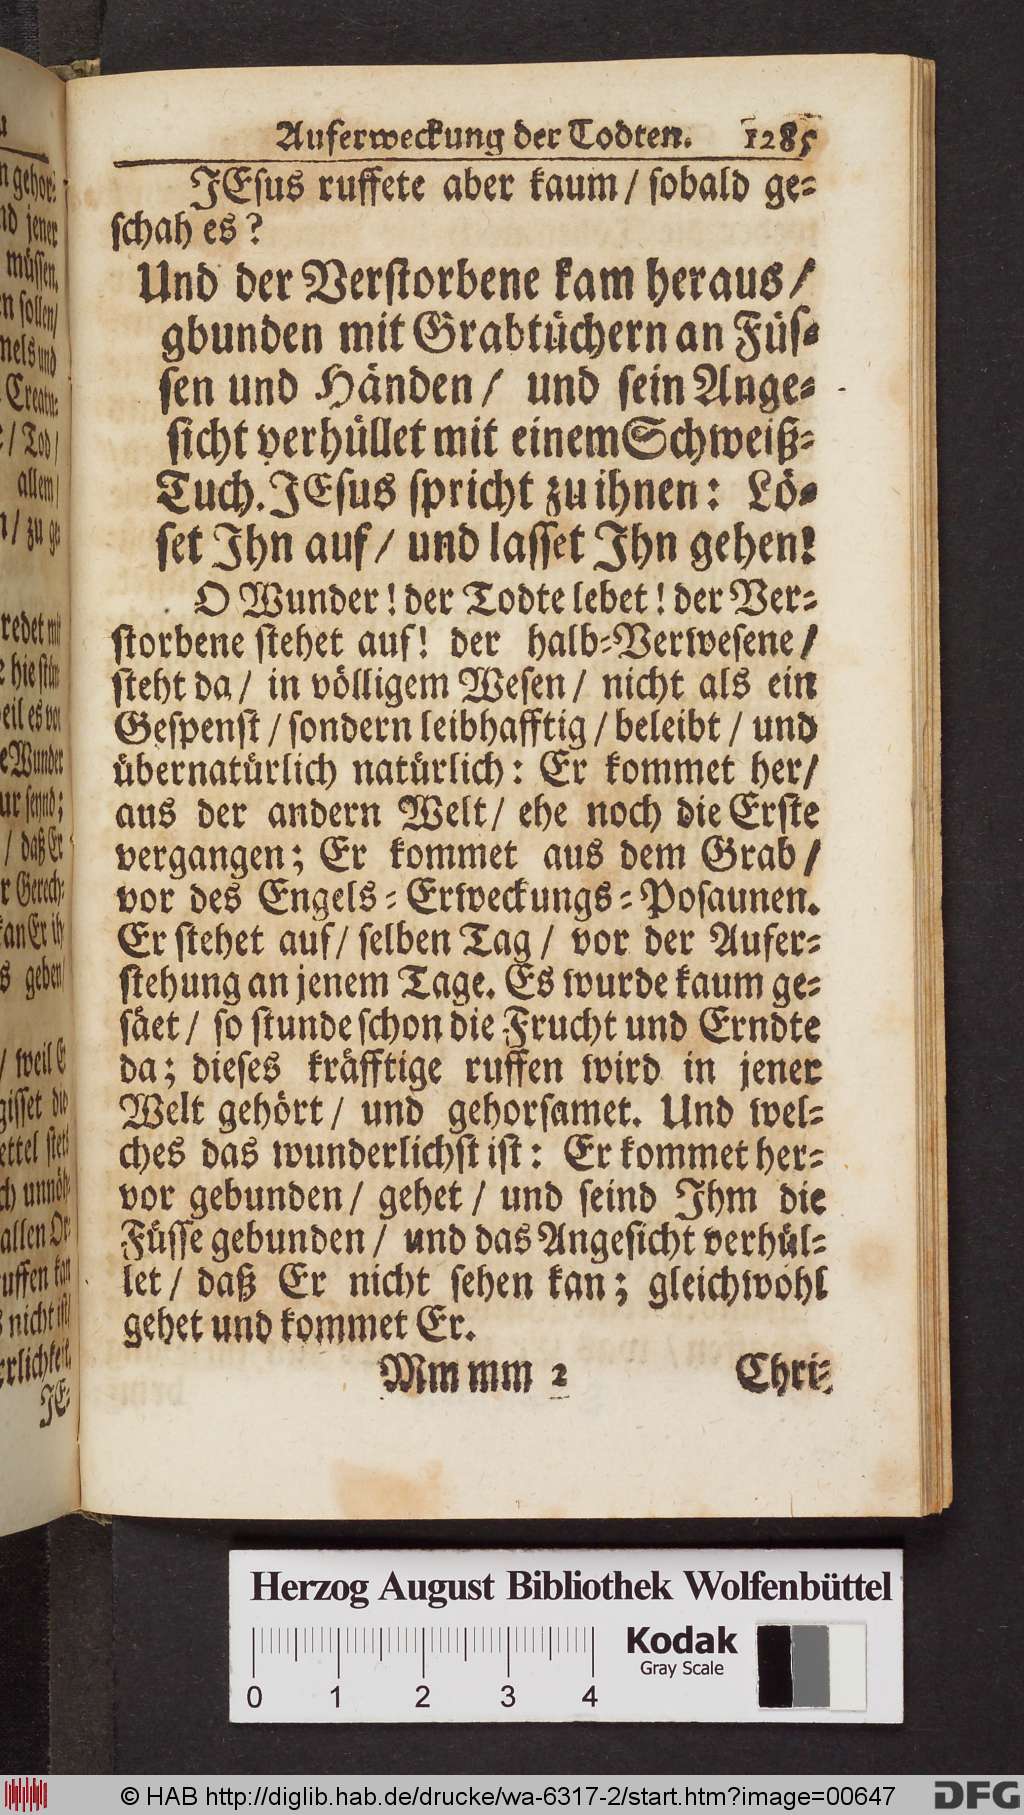 Auferweckung der Todten. 1285
JEsus ruffete aber kaum / sobald ge⸗
schah es?
Und der Verstorbene kam heraus /
gbunden mit Grabtüchern an Füs⸗
sen und Händen / und sein Ange⸗
sicht verhüllet mit einem Schweiß⸗
Tuch. JEsus spricht zu ihnen: Lö⸗
set Ihn auf / und lasset Ihn gehen!
O Wunder! der Todte lebet! der Ver⸗
storbene stehet auf! der halb⸗Verwesene /
steht da / in völligem Wesen / nicht als ein
Gespenst / sondern leibhafftig / beleibt / und
übernatürlich natürlich: Er kommet her /
aus der andern Welt / ehe noch die Erste
vergangen; Er kommet aus dem Grab /
vor des Engels⸗Erweckungs⸗Posaunen.
Er stehet auf / selben Tag / vor der Aufer⸗
stehung an jenem Tage. Es wurde kaum ge⸗
säet / so stunde schon die Frucht und Erndte
da; dieses kräfftige ruffen wird in jener
Welt gehört / und gehorsamet. Und wel⸗
ches das wunderlichst ist: Er kommet her⸗
vor gebunden / gehet / und seind Ihm die
Füsse gebunden / und das Angesicht verhül⸗
let / daß Er nicht sehen kan; gleichwohl
gehet und kommet Er.
Mm mm 2 Chri⸗
nd jener
müssen,
en sollen/
nels und
Creatu⸗
/ Tod /
allem /
redet mit
eil es vor
e Wunder
ur seynd;
/ daß Er
r Gerech⸗
kan Er ih
s geben /
/ weil E
gisset die
ch unnöh⸗
allen Or⸗
uffen kan
s nicht ist /
erlichkeit,
JE⸗
Herzog August Bibliothek Wolfenbüttel
0 1 2 3 4
Kodak
Gray Scale
© HAB http://diglib.hab.de/drucke/wa-6317-2/start.htm?image=00647
DFG